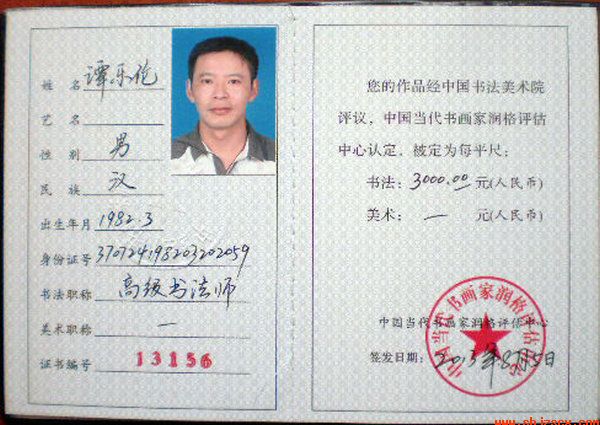 姓名 谭乐伦
艺名
性别 男
民族 汉
出生年月 1982.3
身份证号 370724198203202059
书法职称 高级书法师
美术职称 一
证书编号 13156
您的作品经中国书法美术院
评议，中国当代书画家润格评估
中心认定，被定为每平尺：
书法：3000.00 元(人民币)
美术：一 元(人民币)
中国当代书画家润格评估中心
签发日期：2013年8月5日
中国当代书画家润格评估中心